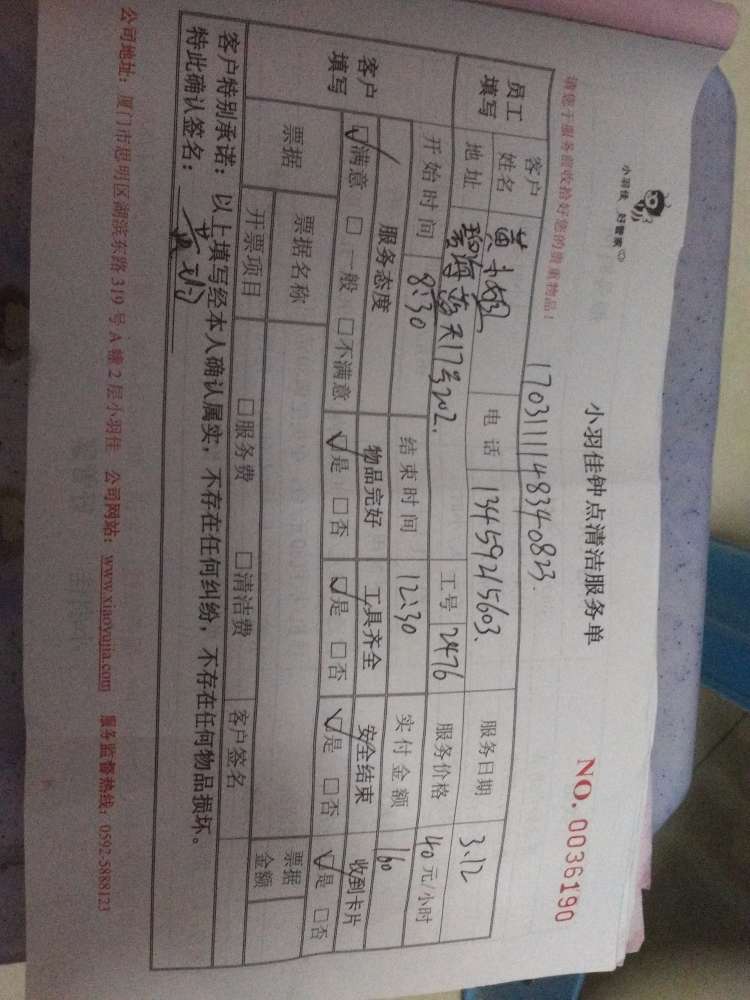 小羽佳 好管家
小羽佳钟点清洁服务单
NO. 0036190
请您于服务前收拾好您的贵重物品！
1703111148340823.
员工填写
客户姓名 黄 电话 13459215603. 服务日期 3.12
地址 碧海蓝天17号202. 工号 2476 服务价格 40元/小时
开始时间 8:30 结束时间 12:30 实付金额 160
客户填写
服务态度 物品完好 工具齐全 安全结束 收到卡片
☑满意 □一般 □不满意 ☑是 □否 ☑是 □否 ☑是 □否 ☑是 □否
票据 票据名称 票据金额
开票项目 □服务费 □清洁费 客户签名
客户特别承诺：以上填写经本人确认属实，不存在任何纠纷，不存在任何物品损坏。
特此确认签名：黄
公司地址：厦门市思明区湖滨东路319号A幢2层小羽佳 公司网站：www.xiaoyujia.com 服务监督热线：0592-5888123